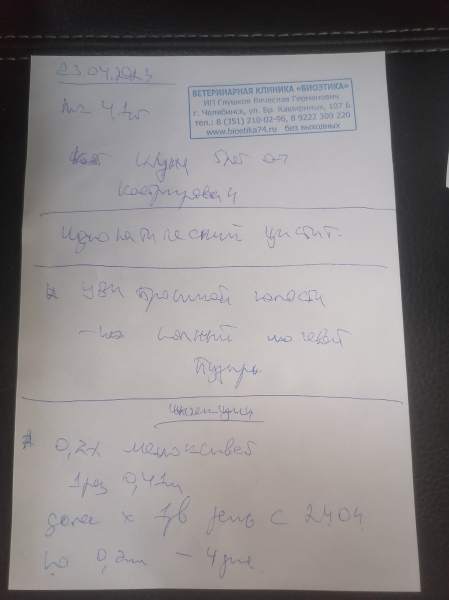 23.04.2023
ВЕТЕРИНАРНАЯ КЛИНИКА «БИОЭТИКА»
ИП Глушков Вячеслав Германович
г. Челябинск, ул. Бр. Кашириных, 107 Б
тел.: 8 (351) 210-02-96, 8 9222 309 220
www.bioetika74.ru без выходных
4,1кг
Кот
5лет
Кастрирован
Идиопатический цистит.
УЗИ брюшной полости
-на полный мочевой
пузырь
инъекции
0,2% мелоксивет
1раз 0,41мл
далее х 1р в день с 24.04
по 0,2мл – 4 дня